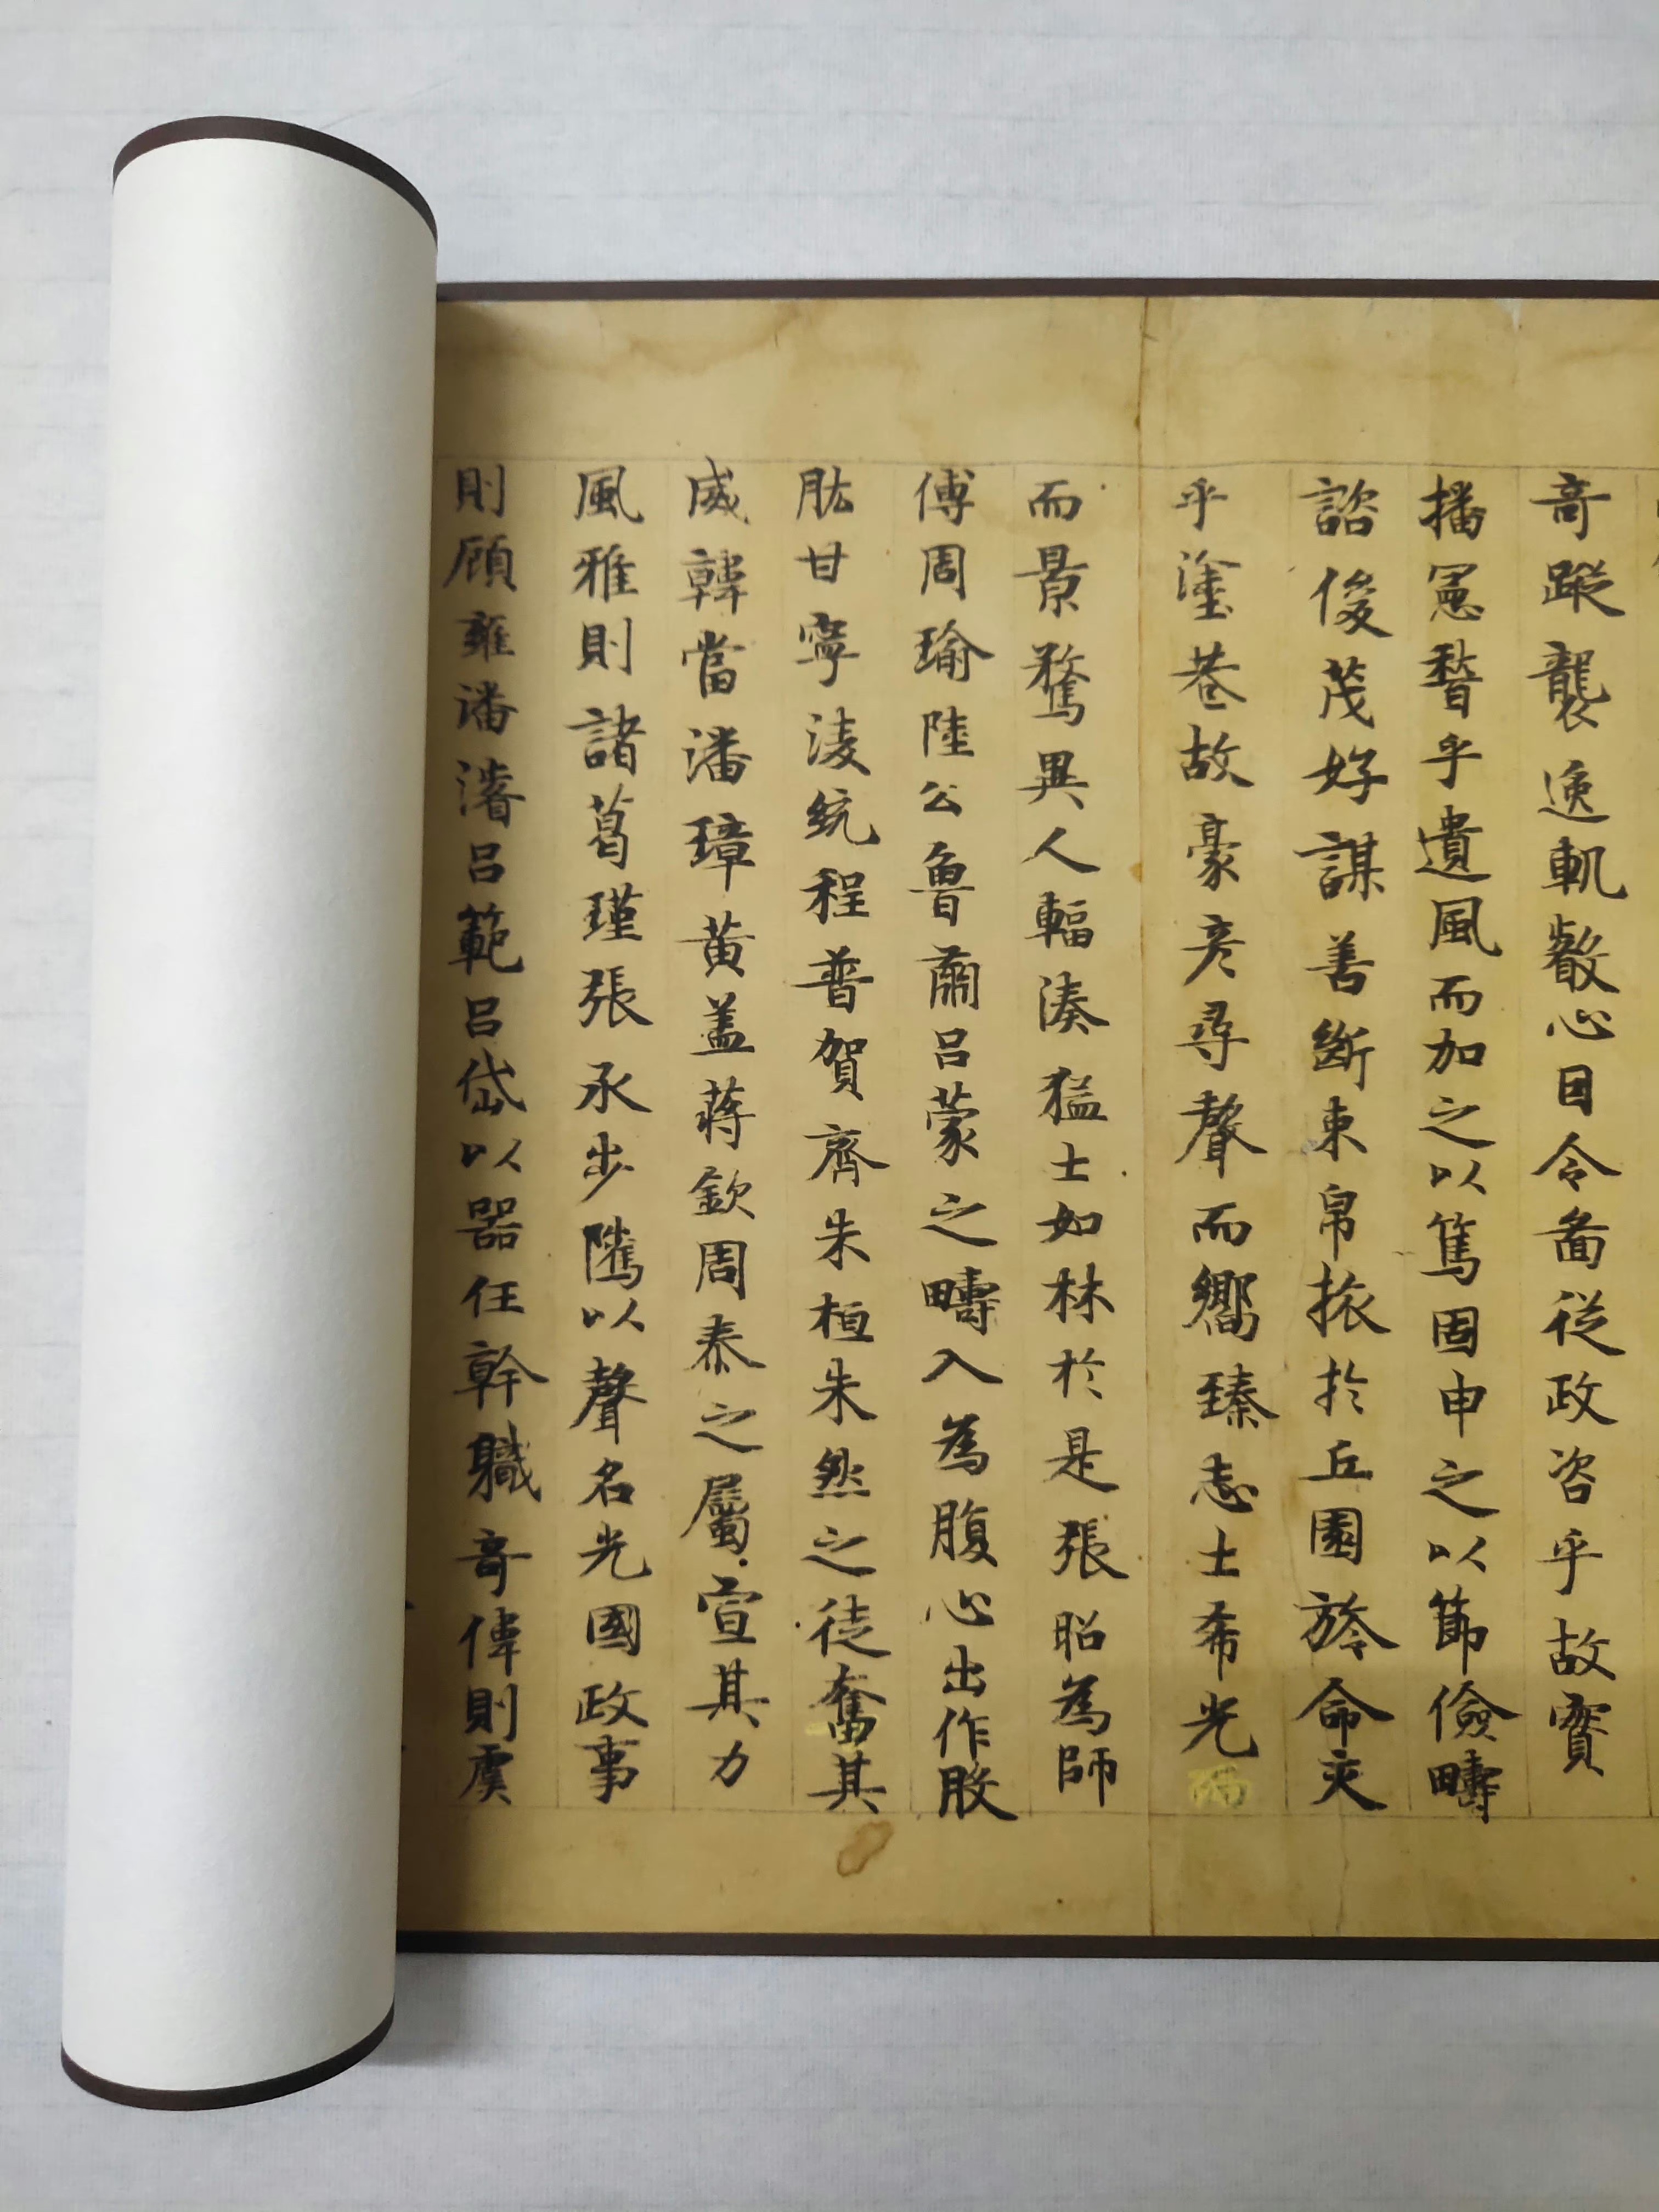 奇蹤襲逸軌叡心因令啚從政咨乎故實
播憲稽乎遺風而加之以篤固申之以節儉疇
諮俊茂好謀善斷束帛振於丘園旍命交
乎塗巷故豪彥尋聲而嚮臻志士希光
而景騖異人輻湊猛士如林於是張昭為師
傅周瑜陸公魯肅呂蒙之疇入為腹心出作股
肱甘寧淩統程普賀齊朱桓朱然之徒奮其
威韓當潘璋黃盖蔣欽周泰之屬宣其力
風雅則諸葛瑾張承步騭以聲名光國政事
則顧雍潘濬呂範呂岱以器任幹職奇偉則虞